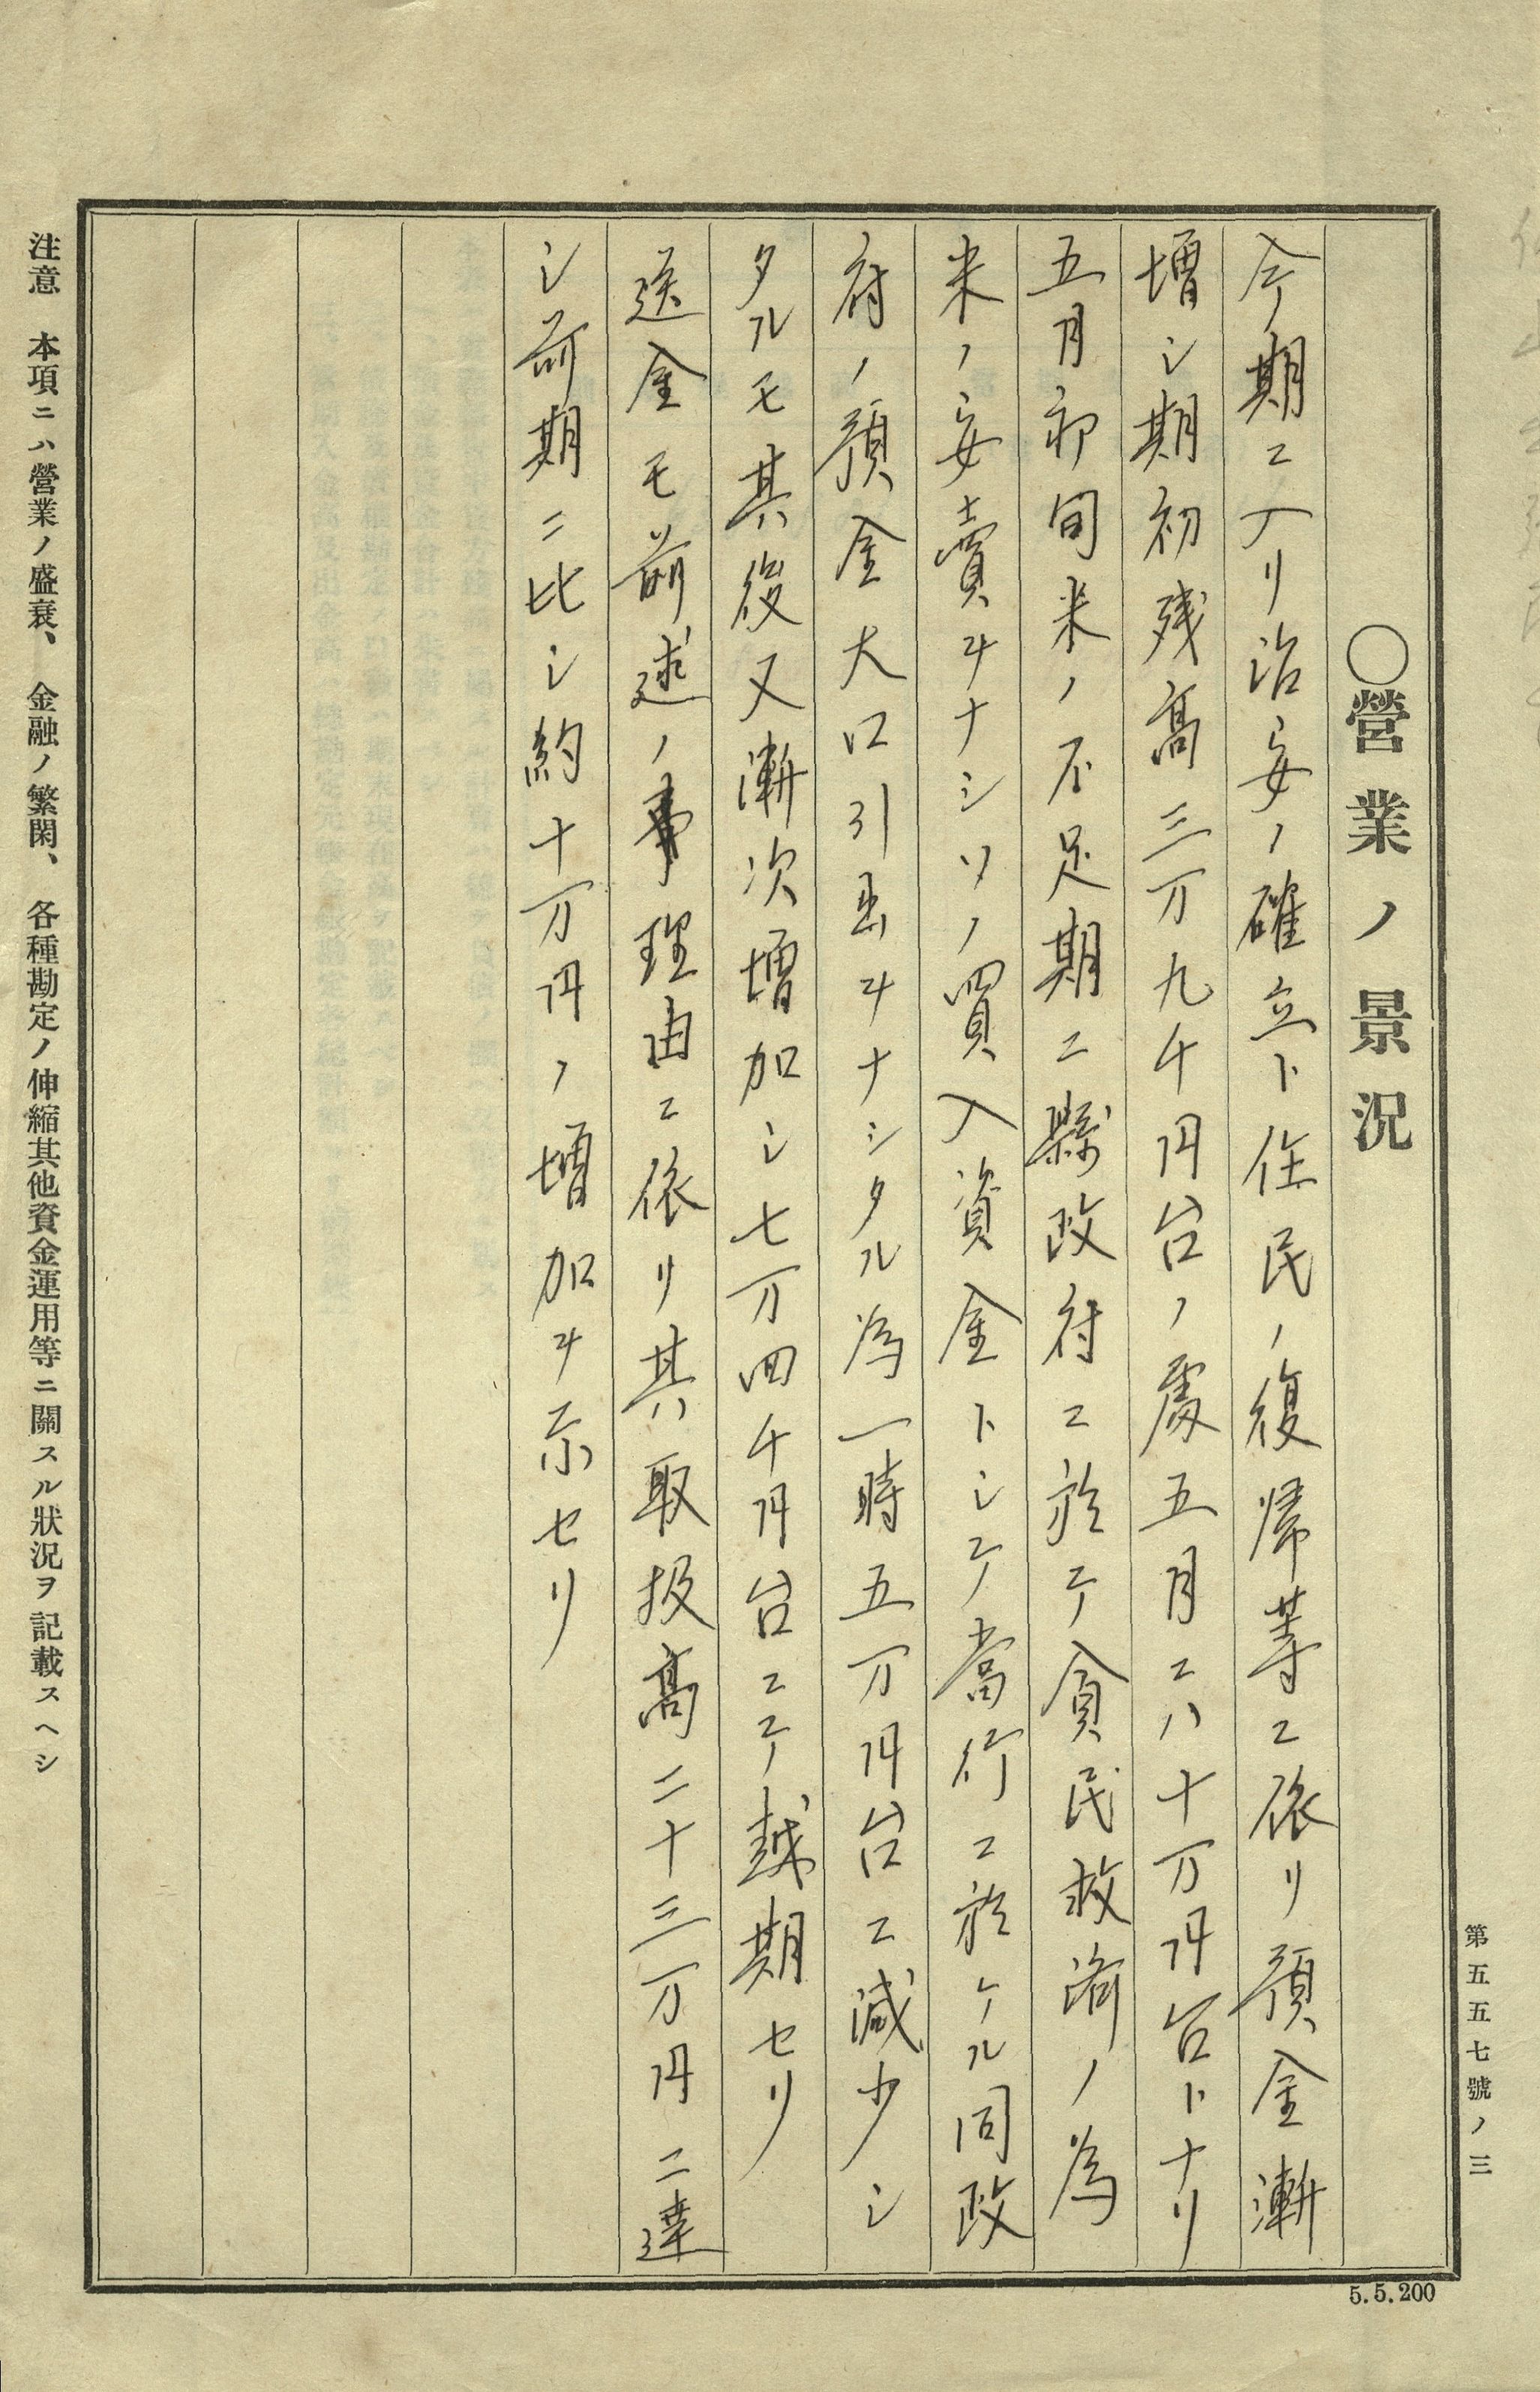 第五五七號ノ三
○營業ノ景況
今期ニ入リ治安ノ確立ト住民ノ復帰等ニ依リ預金漸
増シ期初残高三万九千円台ノ處五月ニハ十万円台トナリ
五月初旬米ノ不足期ニ縣政府ニ於テ貧民救済ノ為
米ノ安賣ヲナシソノ買入資金トシテ當行ニ於ケル同政
府ノ預金大口引出ヲナシタル為一時五万円台ニ減少シ
タルモ其後又漸次増加シ七万四千円台ニテ越期セリ
送金モ前述ノ事理由ニ依リ其取扱高二十三万円ニ達
シ前期ニ比シ約十万円ノ増加ヲ示セリ
注意 本項ニハ營業ノ盛衰、金融ノ繁閑、各種勘定ノ伸縮其他資金運用等ニ關スル狀況ヲ記載スヘシ
5.5.200